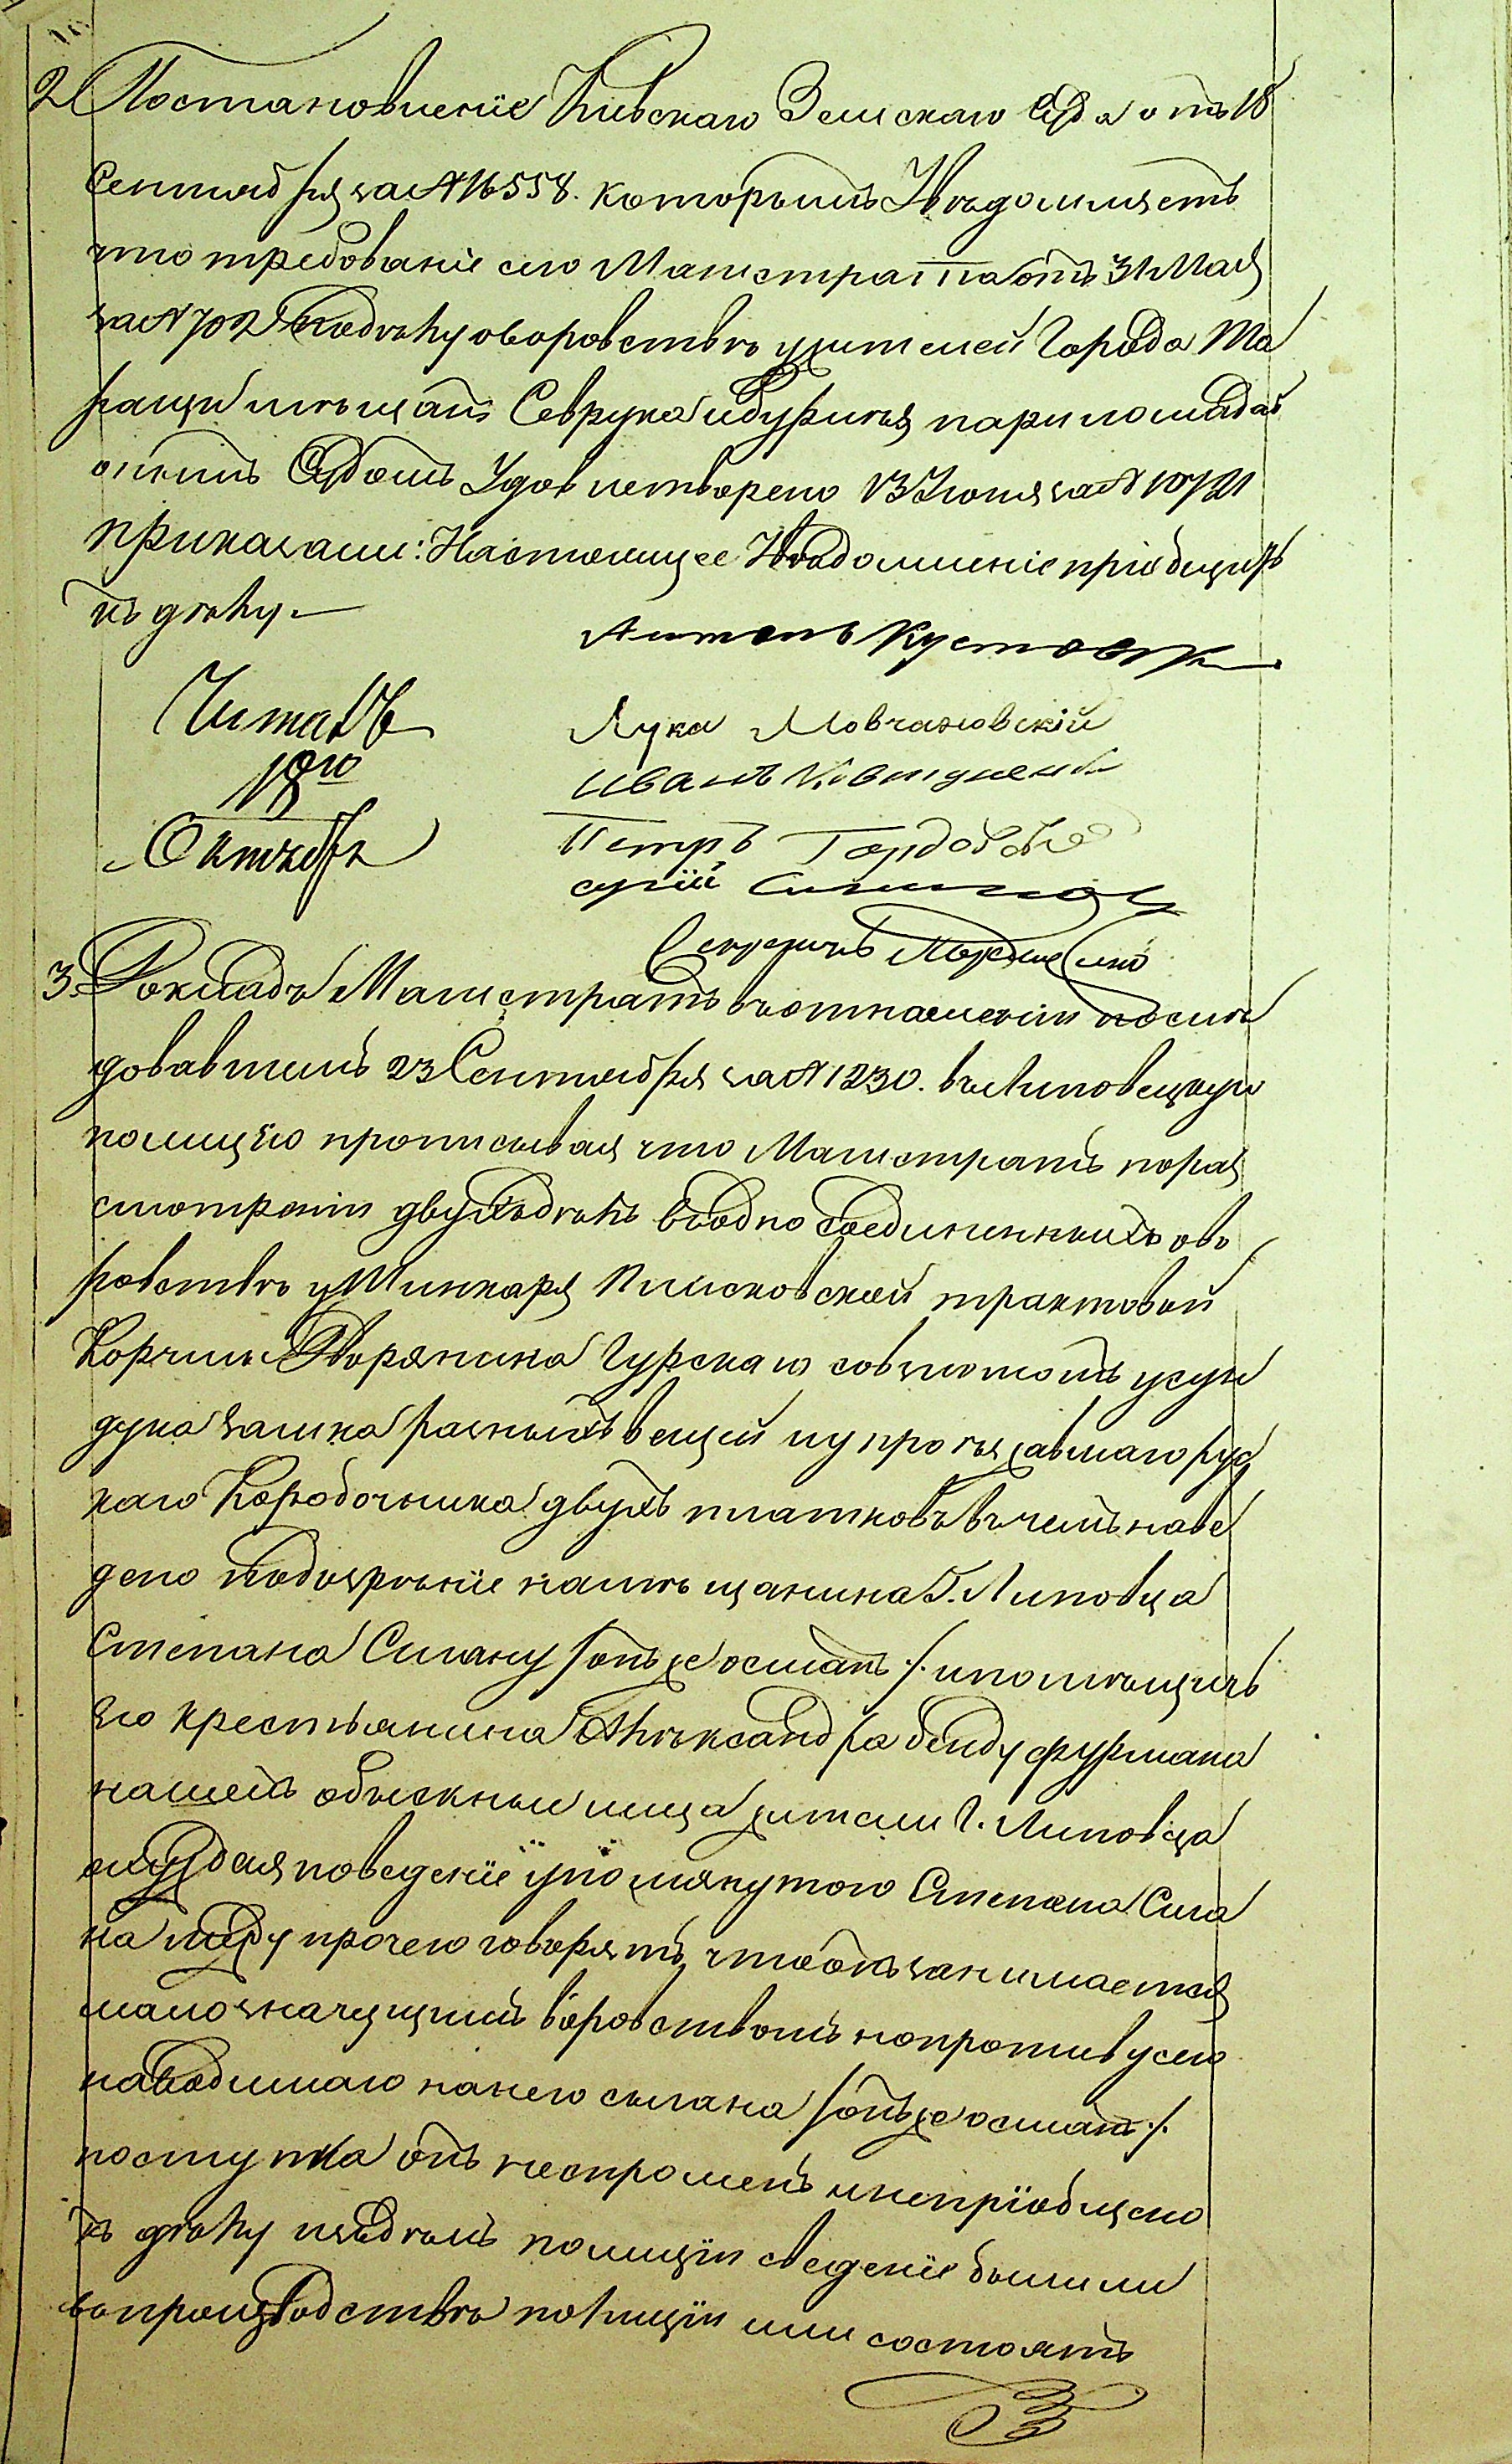 2 Постановление Киевскаго Земскаго Суда отъ 18
Сентября за № 16558. которымъ Увѣдомляетъ
что требованіе сего Магистрата отъ 31 Мая
за № 702 по дѣлу о воровствѣ у жителей Города Та
ращи мѣщанъ Севрука и Бурича пари лошадей
онимъ Судомъ Удовлетворено 13 Іюня за № 10721
приказали: Настоящее Увѣдомленіе пріобщить
къ дѣлу.
Антонъ Кустовск
Читалъ
18го
Октября
Лука Мовчановскій
Иванъ
Петръ
Секретарь
3. Докладъ Магистратъ въ отношеніи послѣ
довавшемъ 23 Сентября за № 1230. въ Липовецкую
полицію прописывая что Магистратъ по раз
смотреніи двухъ дѣлъ въ одно соединенныхъ о во
ровствѣ у Шинкаря Плисковской трактовой
Корчмы Дворянина Гурскаго со взломомъ у сун
дука замка разныхъ вещей и у проѣзжавшаго рус
каго Коробочника двухъ платковъ въ чемъ наве
дено подозрѣніе на мѣщанина Г. Липовца
Степана Сигану /онъ же осматъ/. и помѣщичь
яго крестьянина Алѣксандра Бенду фурмана
нашелъ обыскные лица жители Г. Липовца
обсуждая поведеніе упомянутого Степана Сига
на между прочего говорятъ, что онъ занимается
малозначущимъ воровствомъ но противу сего
наводимаго на него сигана /онъ же осматъ/.
поступка онъ не спрошенъ и не пріобщено
къ дѣлу изъ дѣлъ полиціи сведеніе были ли
въ производствѣ полиціи или состоятъ